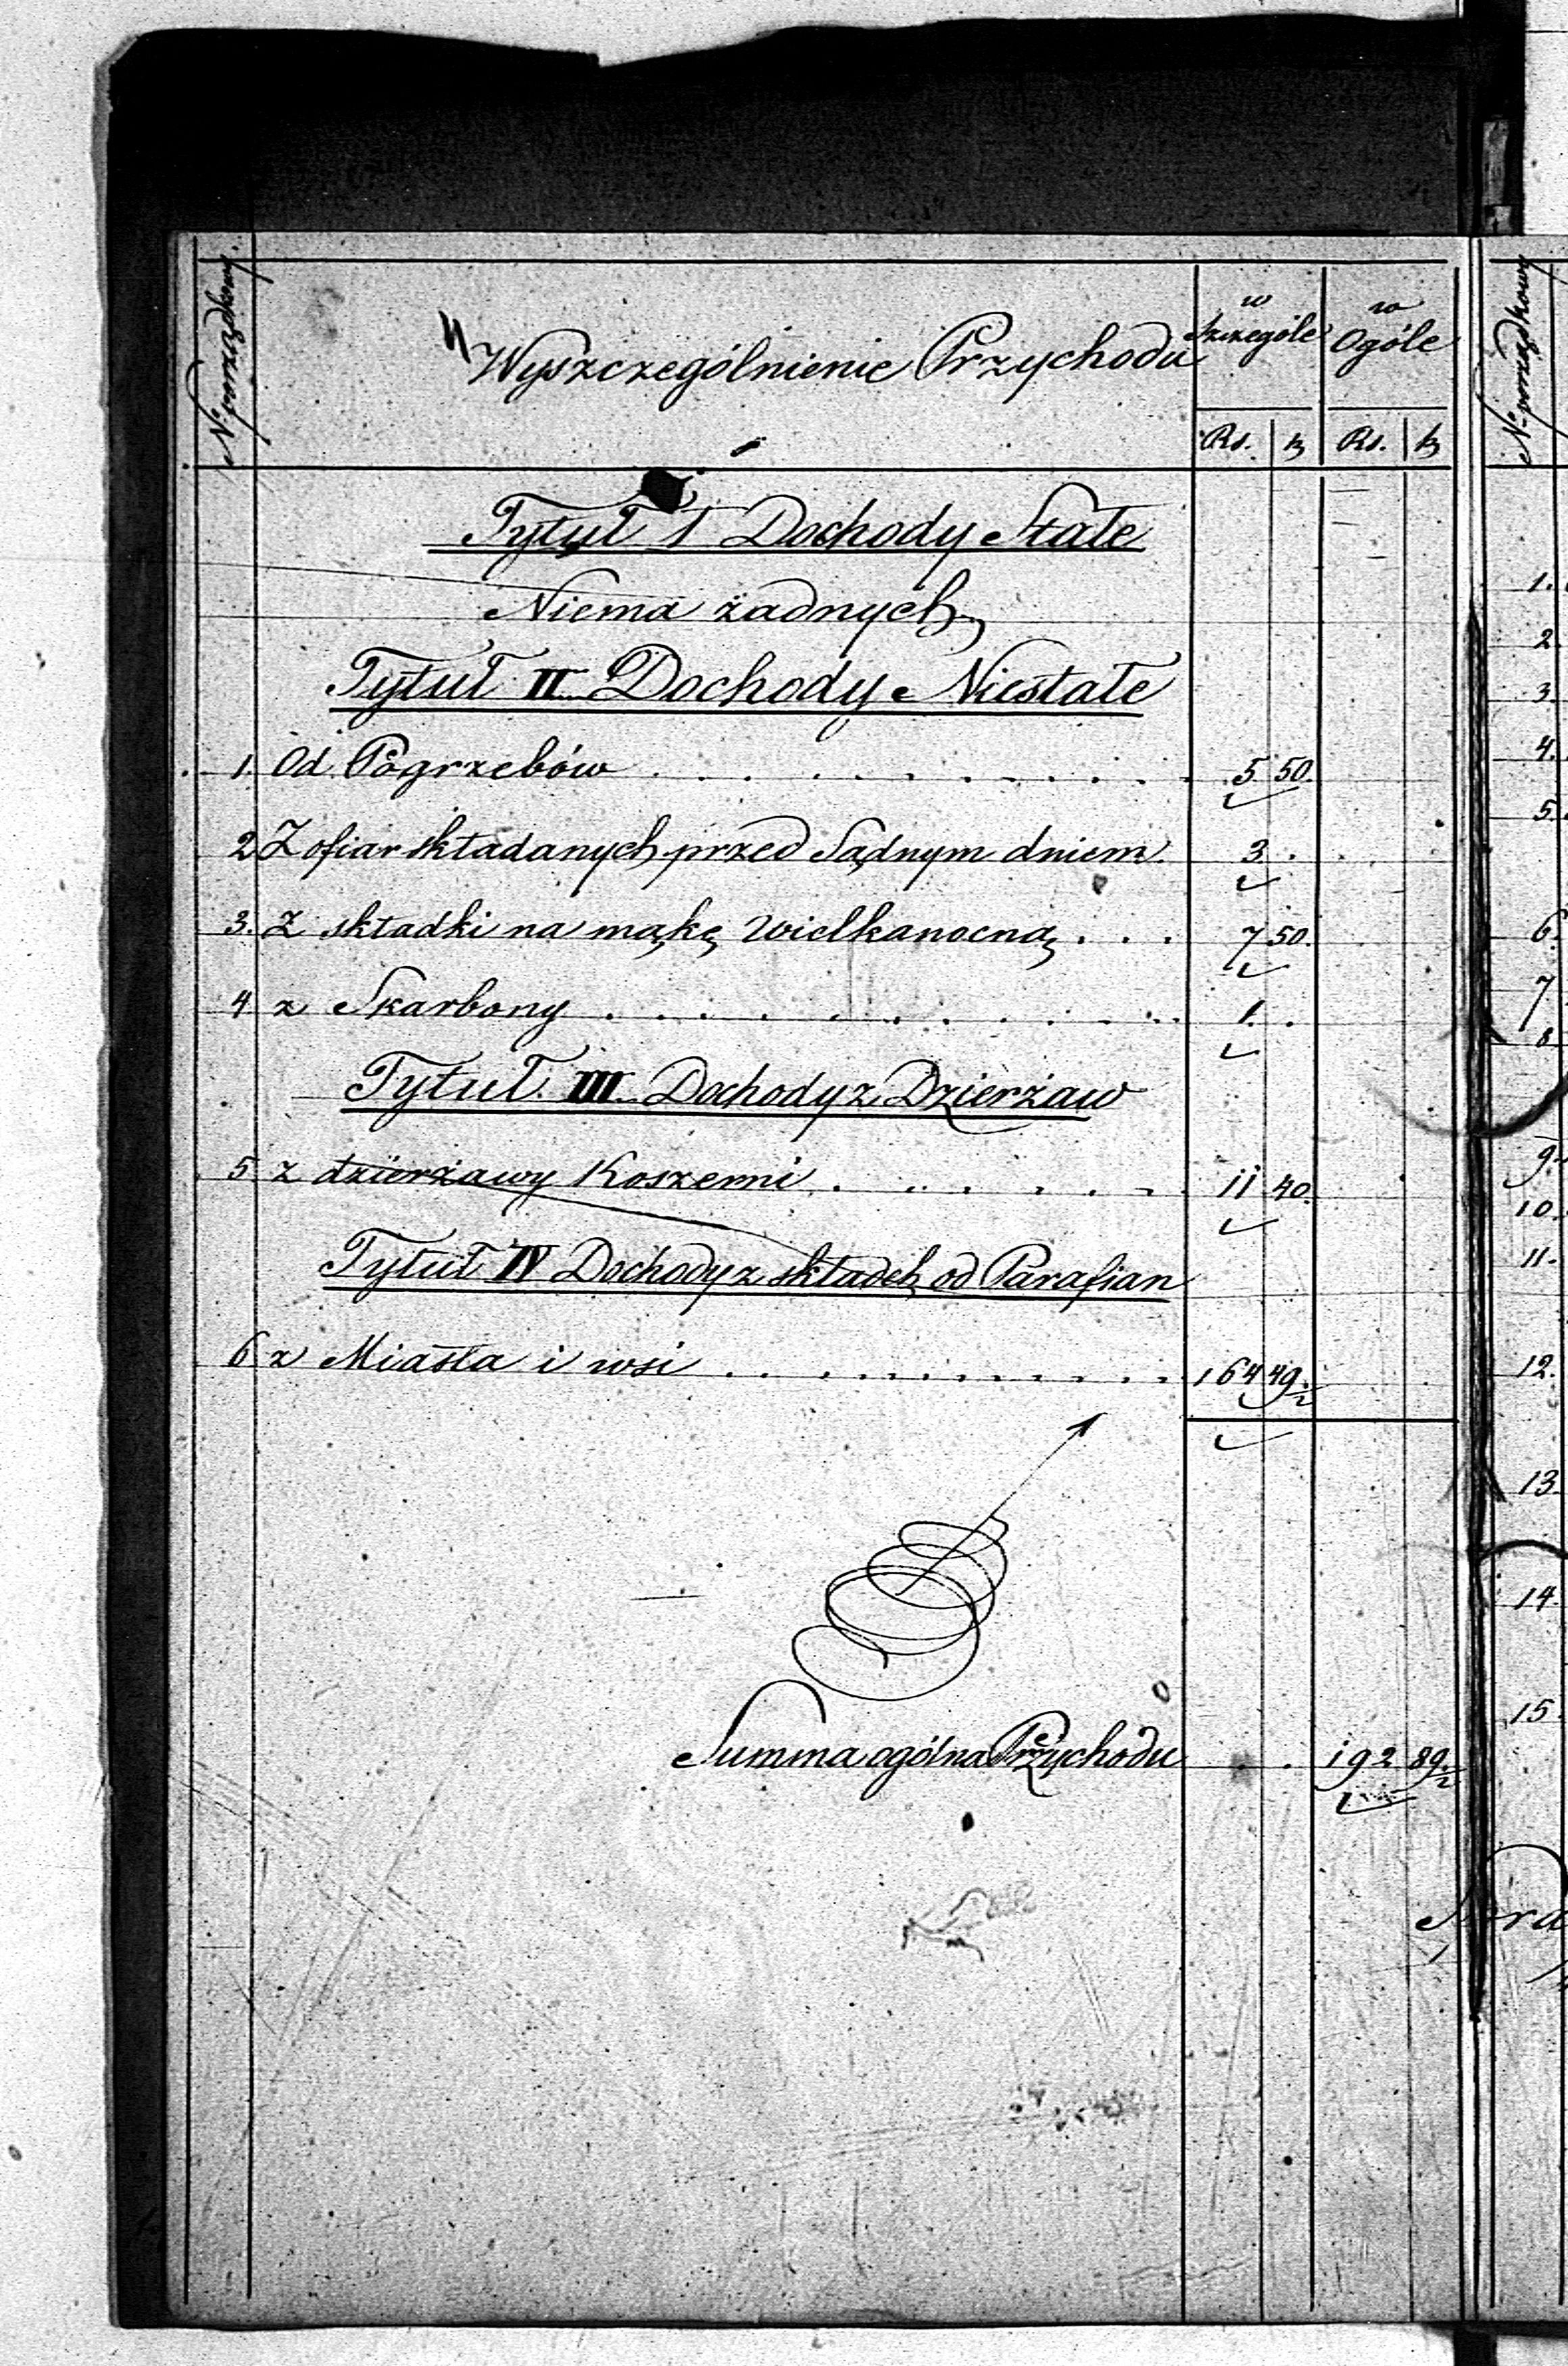 No porządkowy
Wyszczególnienie Przychodu
w Szczególe
w Ogóle
Rs. k Rs. k
Tytuł I Dochody Stałe
Niema żadnych
Tytuł II Dochody Niestałe
1. Od Pogrzebów . . . . . . . . . 5 50.
2 Z ofiar składanych przed Sądnym dniem. 3 .
3. Z składki na mąkę Wielkanocną . . . 7 50.
4 z Skarbony . . . . . . . . . . . 1. .
Tytuł III Dochody z Dzierżaw
5 z dzierżawy Koszerni . . . . . . 11 40.
Tytuł IV Dochody z składek od Parafian
6 z Miasta i wsi . . . . . . . . . . 164 49 1/2
Summa ogólna Przychodu . . 192 89 1/2
No porządkowy
1.
2
3
4.
5.
6.
7
8
9.
10.
11.
12.
13.
14.
15.